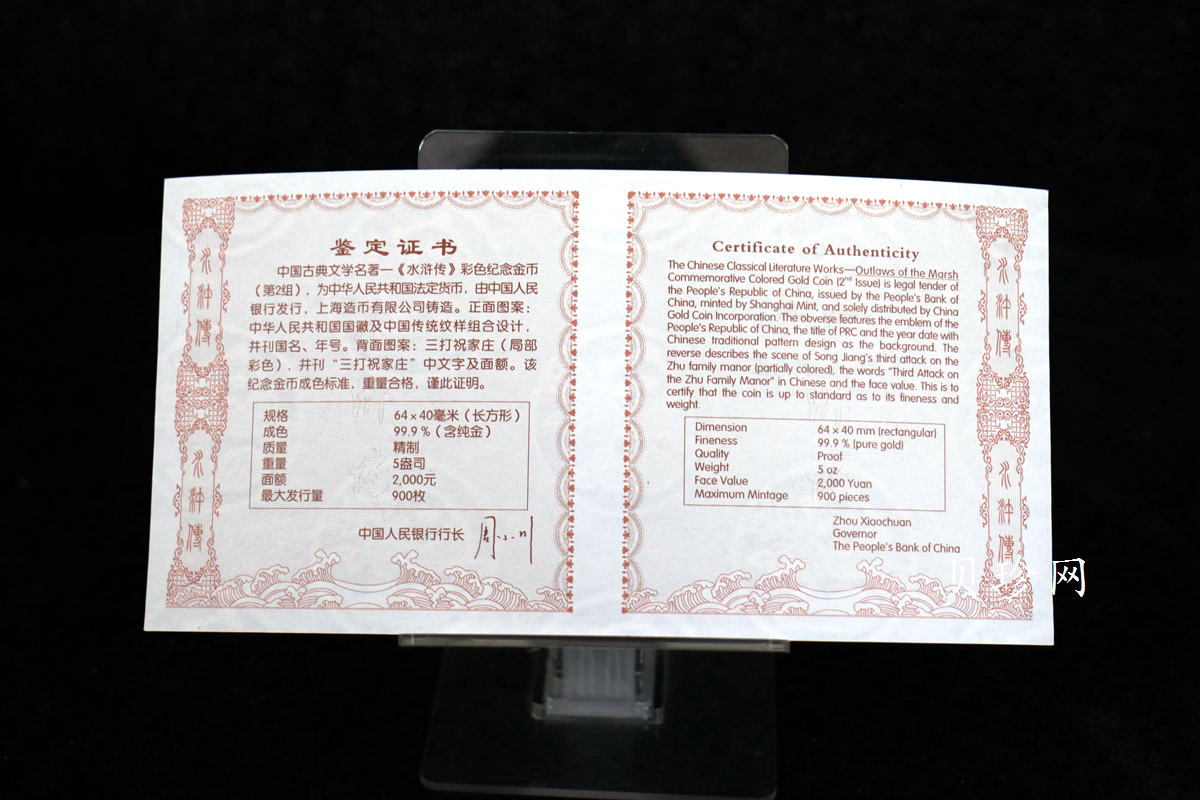 鉴定证书
中国古典文学名著—《水浒传》彩色纪念金币
（第2组），为中华人民共和国法定货币，由中国人民
银行发行，上海造币有限公司铸造。正面图案：
中华人民共和国国徽及中国传统纹样组合设计，
并刊国名、年号。背面图案：三打祝家庄（局部
彩色），并刊“三打祝家庄”中文字及面额。该
纪念金币成色标准，重量合格，谨此证明。
规格 64×40毫米（长方形）
成色 99.9%（含纯金）
质量 精制
重量 5盎司
面额 2,000元
最大发行量 900枚
中国人民银行行长 周小川
水浒傳
水浒傳
Certificate of Authenticity
The Chinese Classical Literature Works—Outlaws of the Marsh
Commemorative Colored Gold Coin (2nd Issue) is legal tender of
the People's Republic of China, issued by the People's Bank of
China, minted by Shanghai Mint, and solely distributed by China
Gold Coin Incorporation. The obverse features the emblem of the
People's Republic of China, the title of PRC and the year date with
Chinese traditional pattern design as the background. The
reverse describes the scene of Song Jiang's third attack on the
Zhu family manor (partially colored), the words "Third Attack on
the Zhu Family Manor" in Chinese and the face value. This is to
certify that the coin is up to standard as to its fineness and
weight.
Dimension 64 × 40 mm (rectangular)
Fineness 99.9 % (pure gold)
Quality Proof
Weight 5 oz
Face Value 2,000 Yuan
Maximum Mintage 900 pieces
Zhou Xiaochuan
Governor
The People's Bank of China
水浒傳
水浒傳
贝珍网